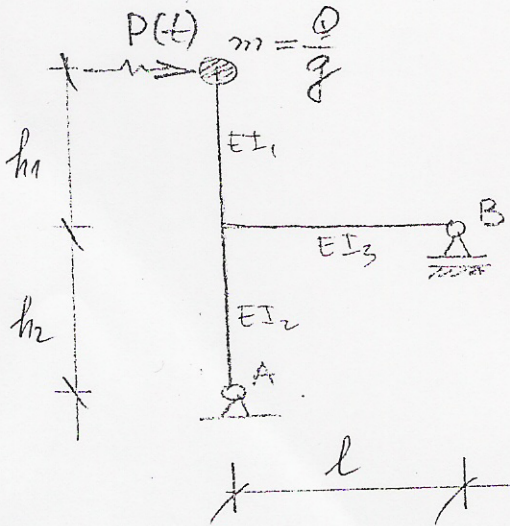 P(t) m = Q/g
h1
EI1
B
EI3
h2
EI2
A
l